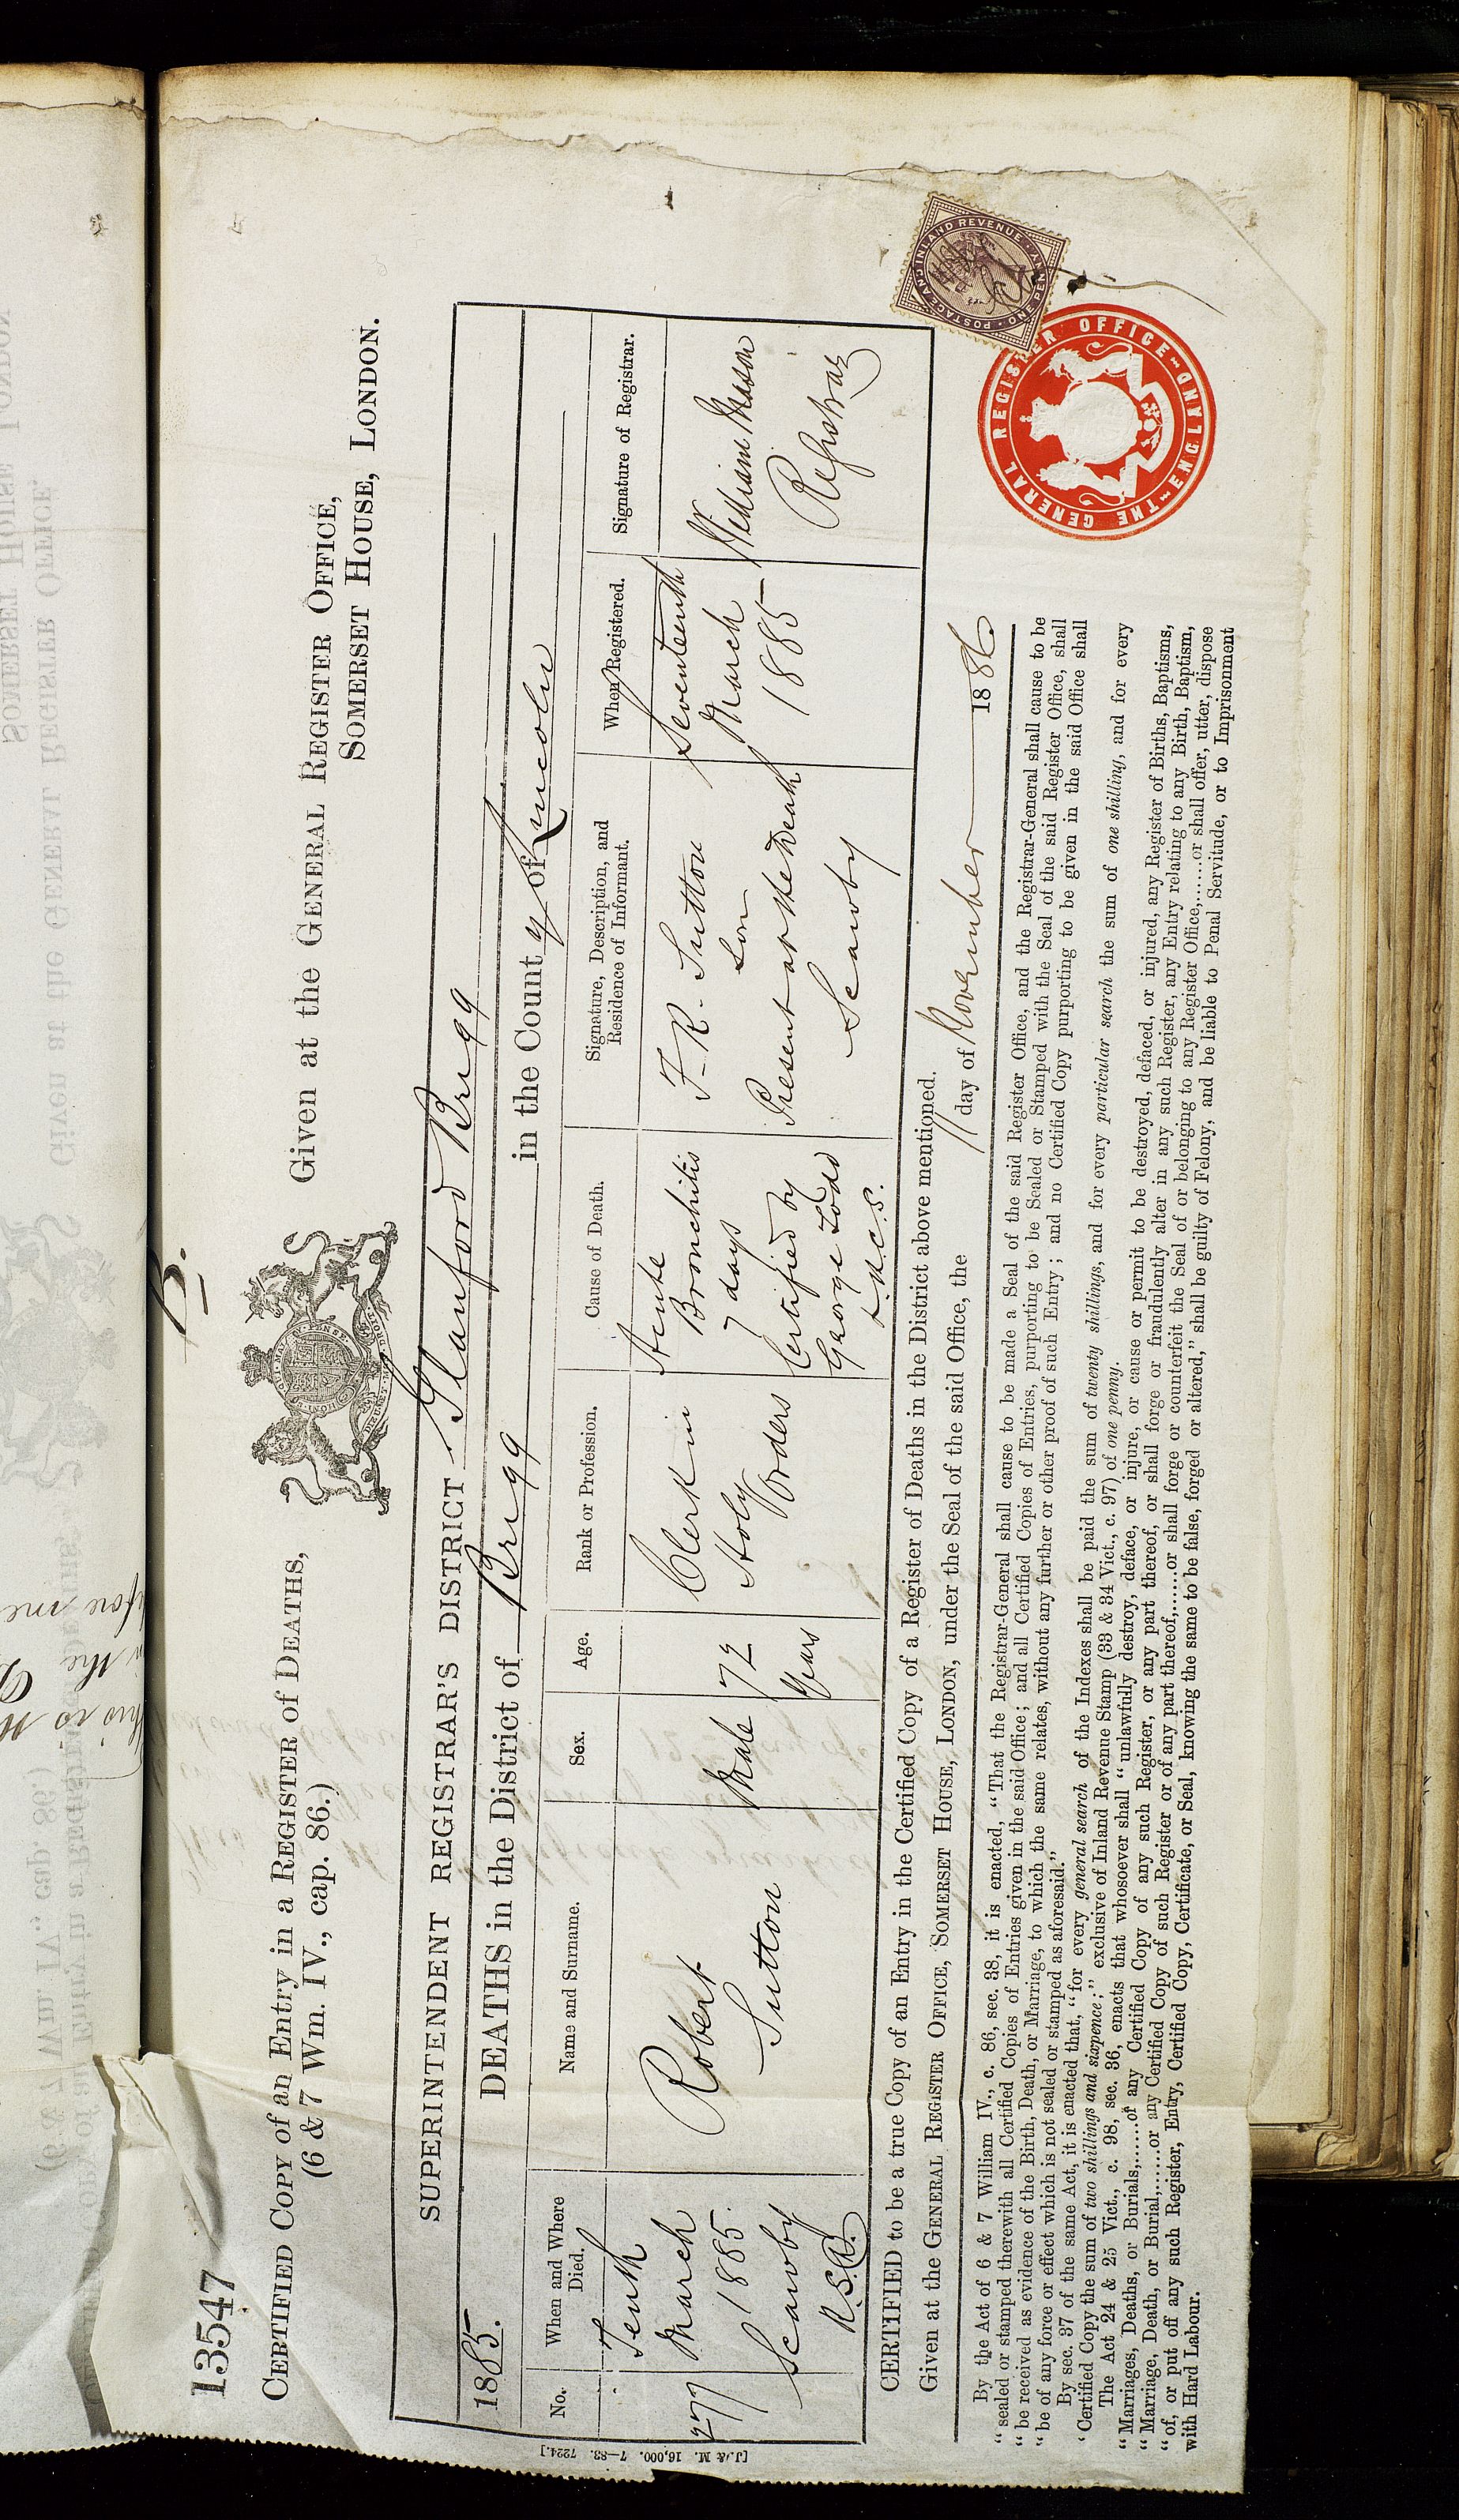 B.
13547
CERTIFIED COPY of an Entry in a REGISTER of DEATHS,
(6 & 7 Wm. IV., cap. 86.)
Given at the GENERAL REGISTER OFFICE,
SOMERSET HOUSE, LONDON.
SUPERINTENDENT REGISTRAR'S DISTRICT Glanford Brigg
1885. DEATHS in the District of Brigg in the County of Lincoln
No.
When and Where
Died.
Name and Surname.
Sex.
Age.
Rank or Profession.
Cause of Death.
Signature, Description, and
Residence of Informant.
When Registered.
Signature of Registrar.
277
Tenth
March
1885.
Scawby
R.S.D.
Robert
Sutton
Male
72
Years
Clerk in
Holy
Orders
Acute
Bronchitis
7 days
Certified by
George Todd
L.R.C.S.
F. R. Sutton
Son
Present at the Death
Scawby
Seventeenth
March
1885
William Mason
Registrar
CERTIFIED to be a true Copy of an Entry in the Certified Copy of a Register of Deaths in the District above mentioned.
Given at the GENERAL REGISTER OFFICE, SOMERSET HOUSE, LONDON, under the Seal of the said Office, the 11 day of November 1886
By the Act of 6 & 7 William IV., c. 86, sec. 38, it is enacted, "That the Registrar-General shall cause to be made a Seal of the said Register Office, and the Registrar-General shall cause to be
"sealed or stamped therewith all Certified Copies of Entries given in the said Office; and all Certified Copies of Entries, purporting to be Sealed or Stamped with the Seal of the said Register Office, shall
"be received as evidence of the Birth, Death, or Marriage, to which the same relates, without any further or other proof of such Entry; and no Certified Copy purporting to be given in the said Office shall
"be of any force or effect which is not sealed or stamped as aforesaid."
By sec. 37 of the same Act, it is enacted that, "for every general search of the Indexes shall be paid the sum of twenty shillings, and for every particular search the sum of one shilling, and for every
'Certified Copy the sum of two shillings and sixpence;" exclusive of Inland Revenue Stamp (33 & 34 Vict., c. 97) of one penny.
The Act 24 & 25 Vict., c. 98, sec. 36, enacts that whosoever shall "unlawfully destroy, deface, or injure, or cause or permit to be destroyed, defaced, or injured, any Register of Births, Baptisms,
"Marriages, Deaths, or Burials,......of any Certified Copy of any such Register, or any part thereof, or shall forge or fraudulently alter in any such Register, any Entry relating to any Birth, Baptism,
"Marriage, Death, or Burial,......or any Certified Copy of such Register or of any part thereof,......or shall forge or counterfeit the Seal of or belonging to any Register Office,......or shall offer, utter, dispose
"of, or put off any such Register, Entry, Certified Copy, Certificate, or Seal, knowing the same to be false, forged or altered," shall be guilty of Felony, and be liable to Penal Servitude, or to Imprisonment
with Hard Labour.
[J. & M. 16,000. 7—83. 7224.]
POSTAGE AND INLAND REVENUE
ONE PENNY
THE GENERAL REGISTER OFFICE ENGLAND